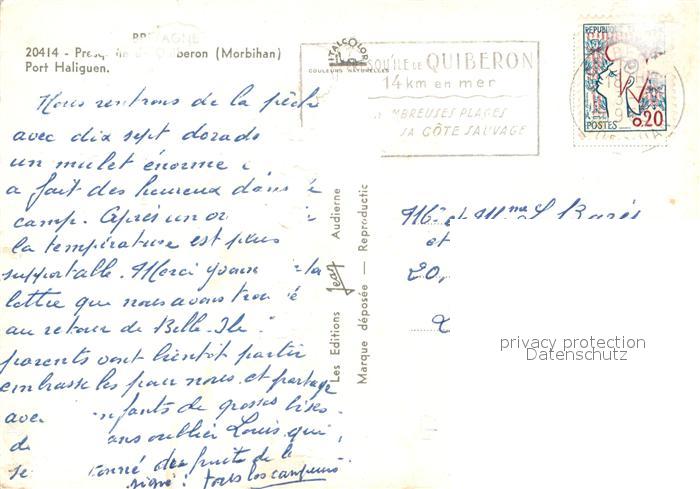 BRETAGNE
20414 - Presqu'île de Quiberon (Morbihan)
Port Haliguen.
ITALCOLOR
COULEURS NATURELLES
SQU'ÎLE DE QUIBERON
14 km en mer
MBREUSES PLAGES
SA CÔTE SAUVAGE
REPUBLIQUE
0,20
POSTES
Nous rentrons de la pêche
avec dix sept dorade
un mulet énorme
a fait des heureux dans
camp. Après un or
la température est plus
supportable. Merci Yvonne la
lettre que nous avons trou é
au retour de Belle-Ile.
parents vont bientôt partir
embrasse les pour nous et partage
avec nfants de grosses bises.
d ans oublier Louis qui
se onné des fruits de l
signé : tous les campeurs
Les Editions Jean Audierne
Marque déposée — Reproductic
M. et Mme
et
20,
privacy protection
Datenschutz